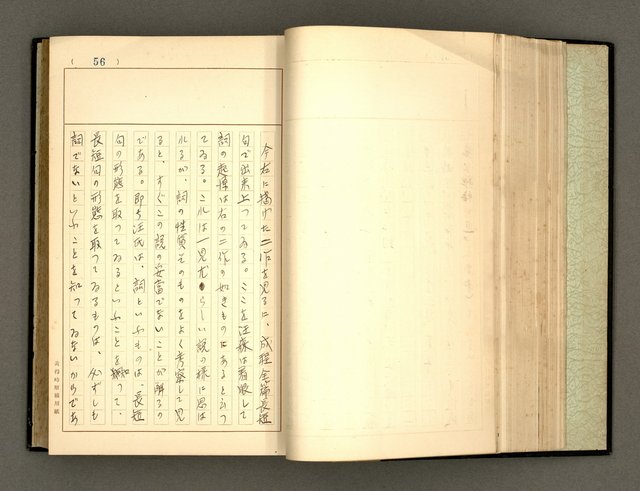 ( 56 )
今右に掲げた二作を見るに、成程全篇長短
句で出来上つてゐる。ここを汪森は着眼して
詞の起源は右の二作の如きものにあると云つ
てゐる。これは一見尤もらしい説の様に思は
れるが、詞の性質そのものをよく考察して見
ると、すぐこの説の妥当でないことが解るの
である。即ち汪氏は、詞といふものは、長短
句の形態を取つてゐるといふことを知つて、
長短句の形態を取つてゐるものは、必ずしも
詞でないといふことを知つてゐないからであ